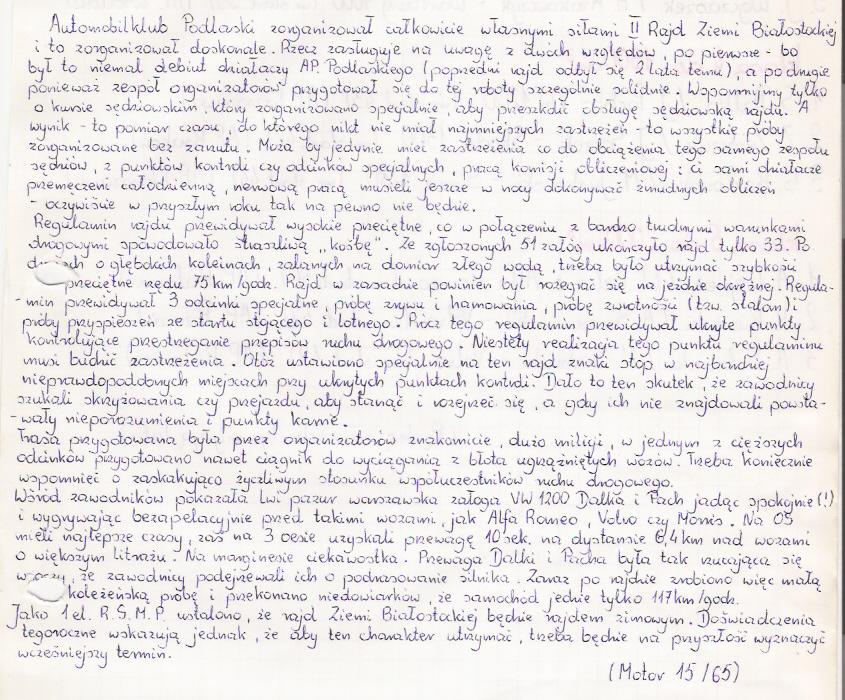 Automobilklub Podlaski zorganizował całkowicie własnymi siłami II Rajd Ziemi Białostockiej
i to zorganizował doskonale. Rzecz zasługuje na uwagę z dwóch względów, po pierwsze - bo
był to niemal debiut działaczy AP. Podlaskiego (poprzedni rajd odbył się 2 lata temu), a po drugie
ponieważ zespół organizatorów przygotował się do tej roboty szczególnie solidnie. Wspomnijmy tylko
o kursie sędziowskim, który zorganizowano specjalnie, aby przeszkolić obsługę sędziowską rajdu. A
wynik - to pomiar czasu, do którego nikt nie miał najmniejszych zastrzeżeń - to wszystkie próby
zorganizowane bez zarzutu. Można by jedynie mieć zastrzeżenia co do obciążenia tego samego zespołu
sędziów, z punktów kontroli czy odcinków specjalnych, pracą komisji obliczeniowej : ci sami działacze
przemęczeni całodzienną, nerwową pracą musieli jeszcze w nocy dokonywać żmudnych obliczeń
- oczywiście w przyszłym roku tak na pewno nie będzie.
Regulamin rajdu przewidywał wysokie przeciętne, co w połączeniu z bardzo trudnymi warunkami
drogowymi spowodowało straszliwą "kośbę". Ze zgłoszonych 51 załóg ukończyło rajd tylko 33. Po
o głębokich koleinach, zalanych na domiar złego wodą, trzeba było utrzymać szybkości
przeciętne rzędu 75 km/godz. Rajd w zasadzie powinien był rozegrać się na jeździe okrężnej. Regula-
-min przewidywał 3 odcinki specjalne, próbę zrywu i hamowania, próbę zwrotności (tzw. slalom) i
próby przyspieszeń ze startu stojącego i lotnego. Prócz tego regulamin przewidywał ukryte punkty
kontrolujące przestrzeganie przepisów ruchu drogowego. Niestety realizacja tego punktu regulaminu
musi budzić zastrzeżenia. Otóż ustawiono specjalnie na ten rajd znaki stop w najbardziej
nieprawdopodobnych miejscach przy ukrytych punktach kontroli. Dało to ten skutek, że zawodnicy
szukali skrzyżowania czy przejazdu, aby stanąć i rozejrzeć się, a gdy ich nie znajdowali powsta-
-wały nieporozumienia i punkty karne.
Trasa przygotowana była przez organizatorów znakomicie, dużo milicji, w jednym z cięższych
odcinków przygotowano nawet ciągnik do wyciągania z błota ugrzęźniętych wozów. Trzeba koniecznie
wspomnieć o zaskakująco życzliwym stosunku współuczestników ruchu drogowego.
Wśród zawodników pokazała lwi pazur warszawska załoga VW 1200 Dalka i Pach jadąc spokojnie (!)
i wygrywając bezapelacyjnie przed takimi wozami, jak Alfa Romeo, Volvo czy Morris. Na OS
mieli najlepsze czasy, zaś na 3 oesie uzyskali przewagę 10 sek. na dystansie 6,4 km nad wozami
o większym litrażu. Na marginesie ciekawostka. Przewaga Dalki i Pacha była tak rzucająca się
w oczy, że zawodnicy podejrzewali ich o podrasowanie silnika. Zaraz po rajdzie zrobiono więc małą
koleżeńską próbę i przekonano niedowiarków, że samochód jedzie tylko 117 km/godz.
Jako 1 el. R.S.M.P. ustalono, że rajd Ziemi Białostockiej będzie rajdem zimowym. Doświadczenia
tegoroczne wskazują jednak, że aby ten charakter utrzymać, trzeba będzie na przyszłość wyznaczyć
wcześniejszy termin.
(Motor 15/65)